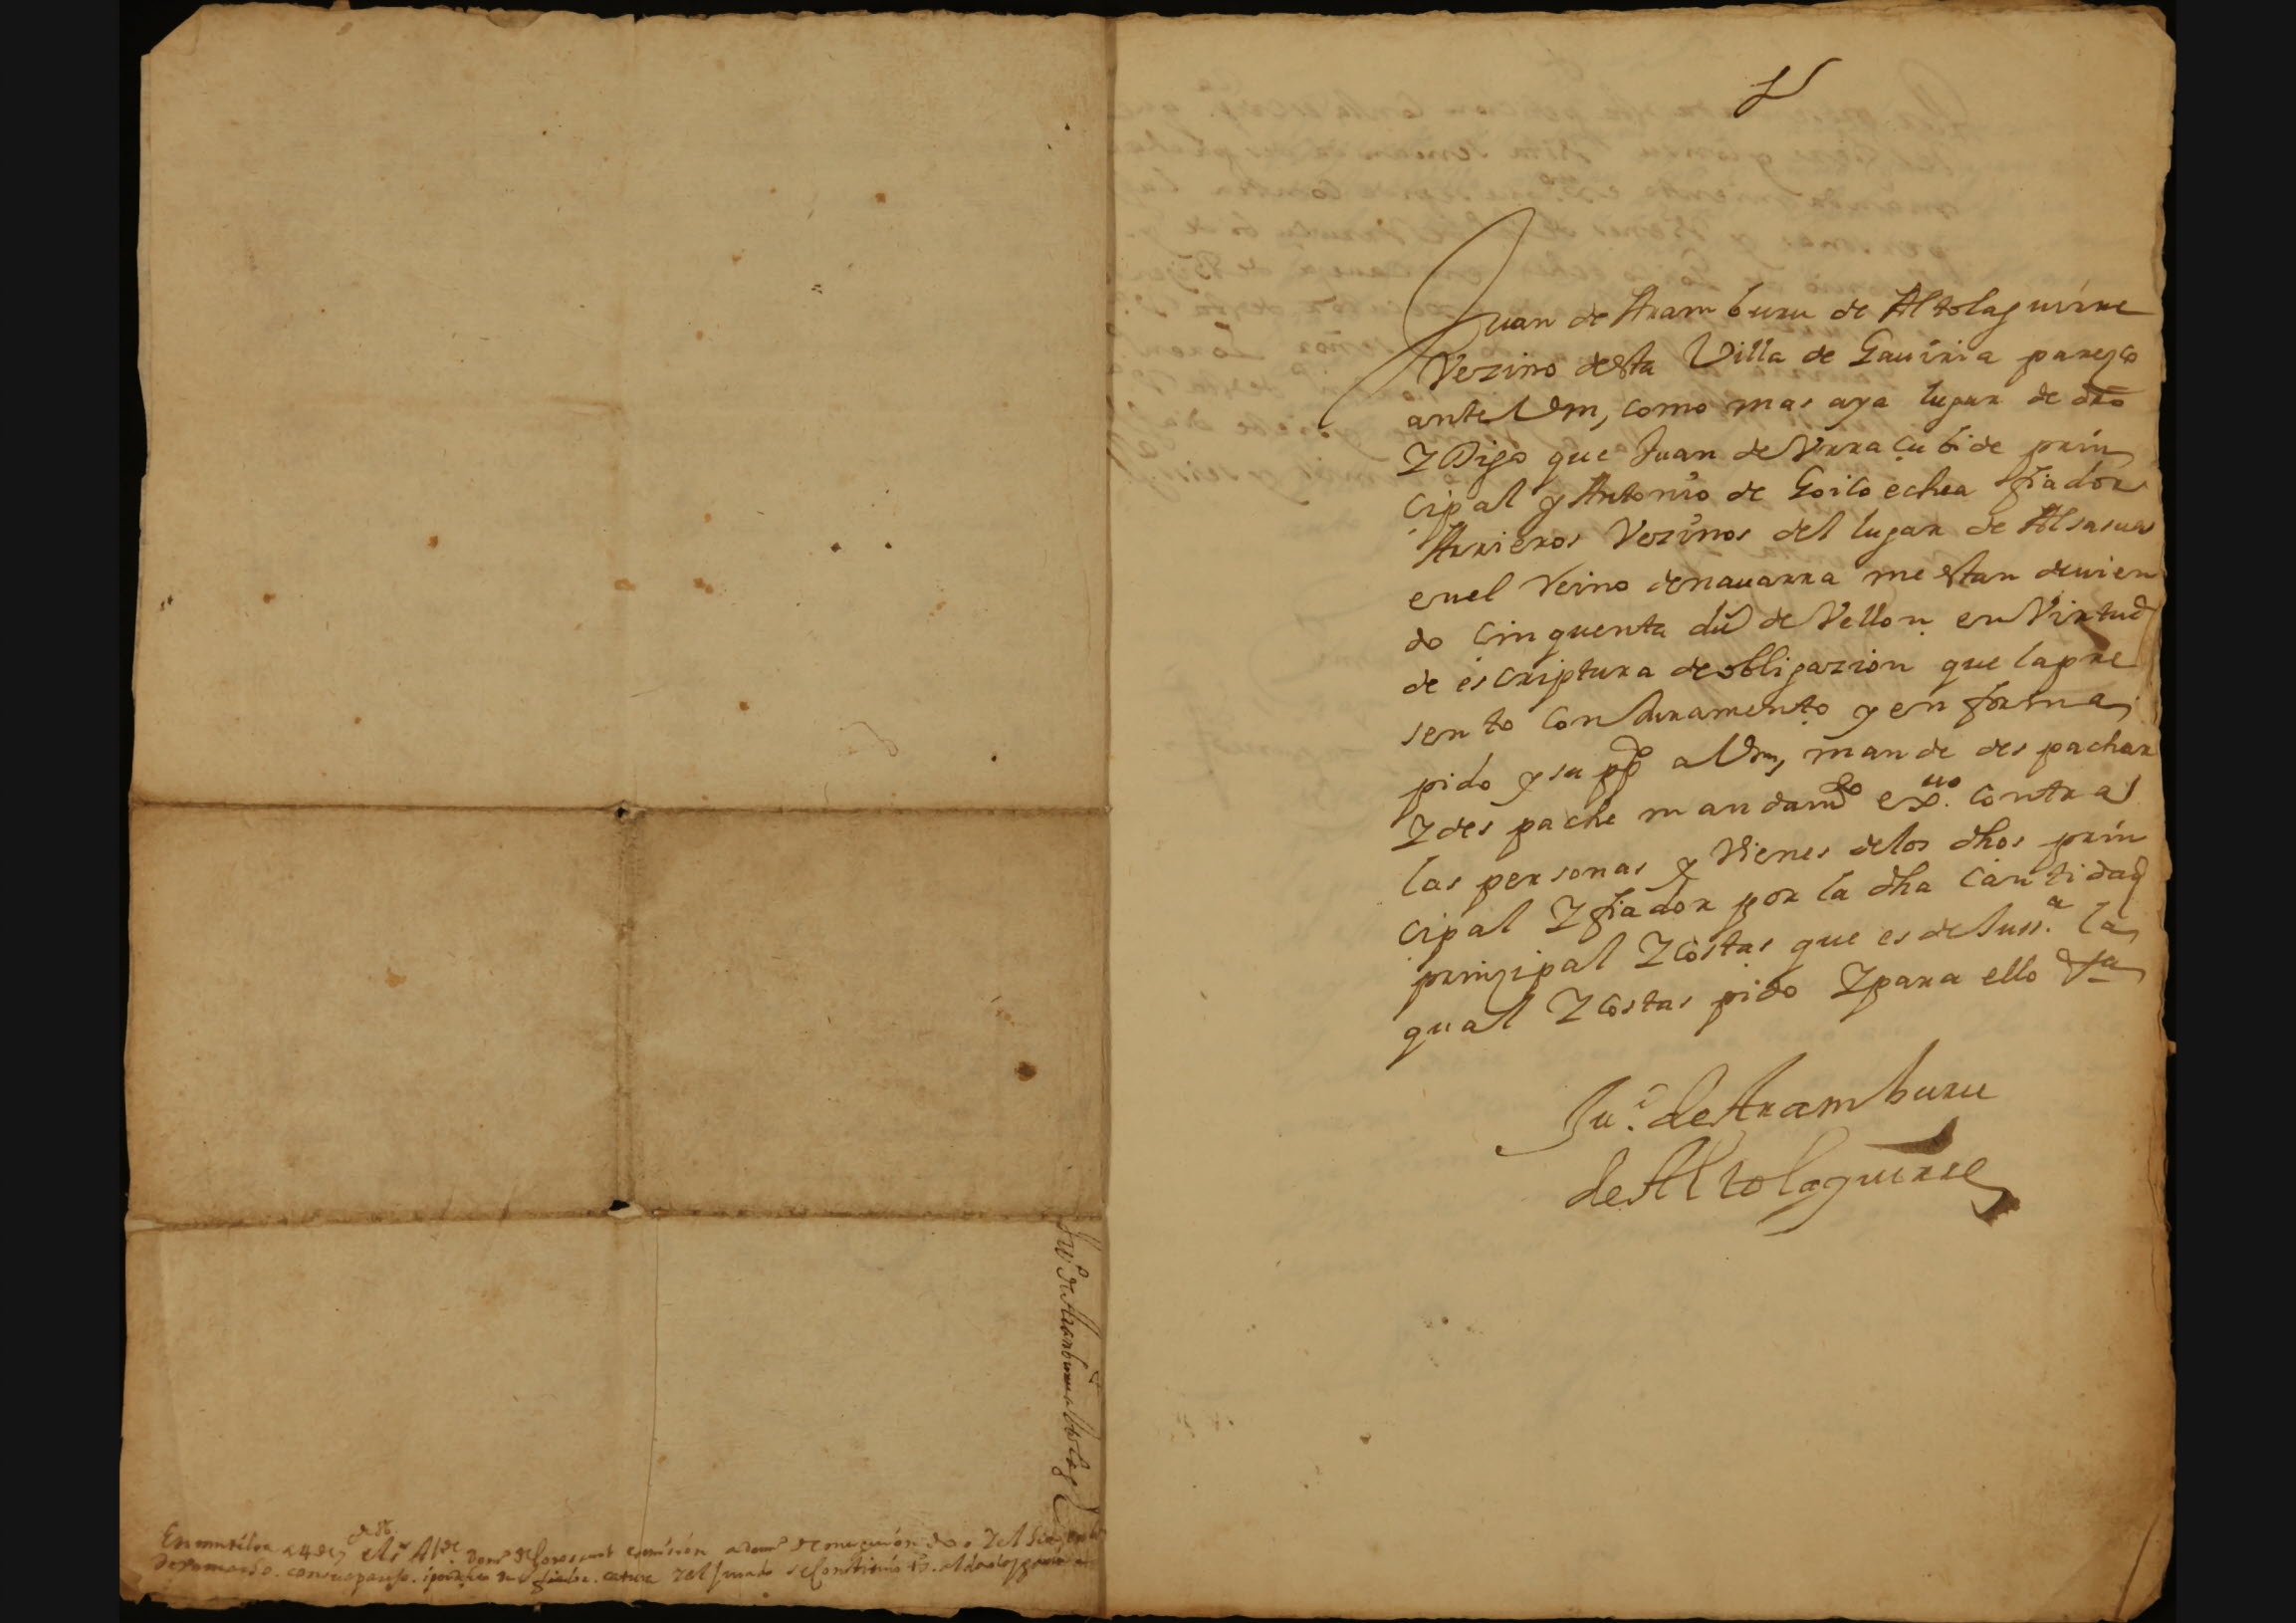 Juan de Aramburu de Altolaguirre
Vezino desta Villa de Gauiria parezco
ante Vm, como mas aya lugar de dro
Y Digo que Juan de Vrraçubide prin
cipal y Antonio de Goicoechea fiador
Arrieros Vezinos del lugar de Alsasua
en el Reino de nauarra me estan deuien
do cinquenta du de Vellon en Virtud
de escriptura de obligazion que la pre
sento con Juramento y en forma
pido y supco a Vm, mande despachar
Y despache mandamto exuo. contra
las personas y Vienes de los dhos prin
cipal Y fiador por la dha cantidad
prinzipal Y costas que es de Juss.a la
qual Y costas pido Y para ello Va
Ju.o de Aramburu
de Altolaguirre
Ju.o de Aramburu Altolag
En mutiloa a 4 de